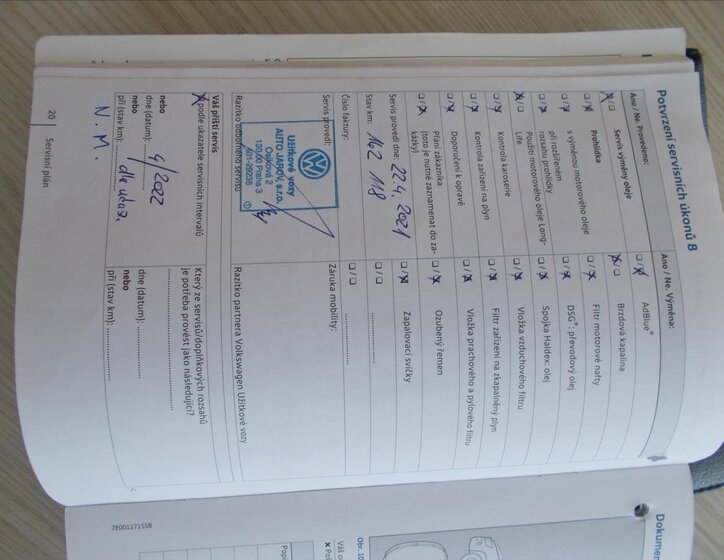 Potvrzení servisních úkonů 8
Ano / Ne. Provedeno:
Servis výměny oleje
Prohlídka
s výměnou motorového oleje
při rozšířeném
rozsahu prohlídky
Použití motorového oleje Long-
Life
Kontrola karoserie
Kontrola zařízení na plyn
Doporučení k opravě
Přání zákazníka
(toto je nutné zaznamenat do za-
kázky)
Servis provedl dne: 22.4.2021
Stav km: 162 118
Číslo faktury:
Servis provedl:
Užitkové vozy
AUTO JAROV, s.r.o.
Osiková 2
130 00 Praha 3
Razítko odborného servisu
Ano / Ne. Výměna:
AdBlue®
Brzdová kapalina
Filtr motorové nafty
DSG®: převodový olej
Spojka Haldex: olej
Vložka vzduchového filtru
Filtr zařízení na zkapalněný plyn
Vložka prachového a pylového filtru
Ozubený řemen
Zapalovací svíčky
Záruka mobility:
Razítko partnera Volkswagen Užitkové vozy
Váš příští servis
podle ukazatele servisních intervalů
nebo
dne (datum): 4/2022
nebo
při (stav km): dle ukaz.
N.M.
Který ze servisů/doplňkových rozsahů
je potřeba provést jako následující?
dne (datum):
nebo
při (stav km):
20 Servisní plán
7E0012715SB
Obr. 10